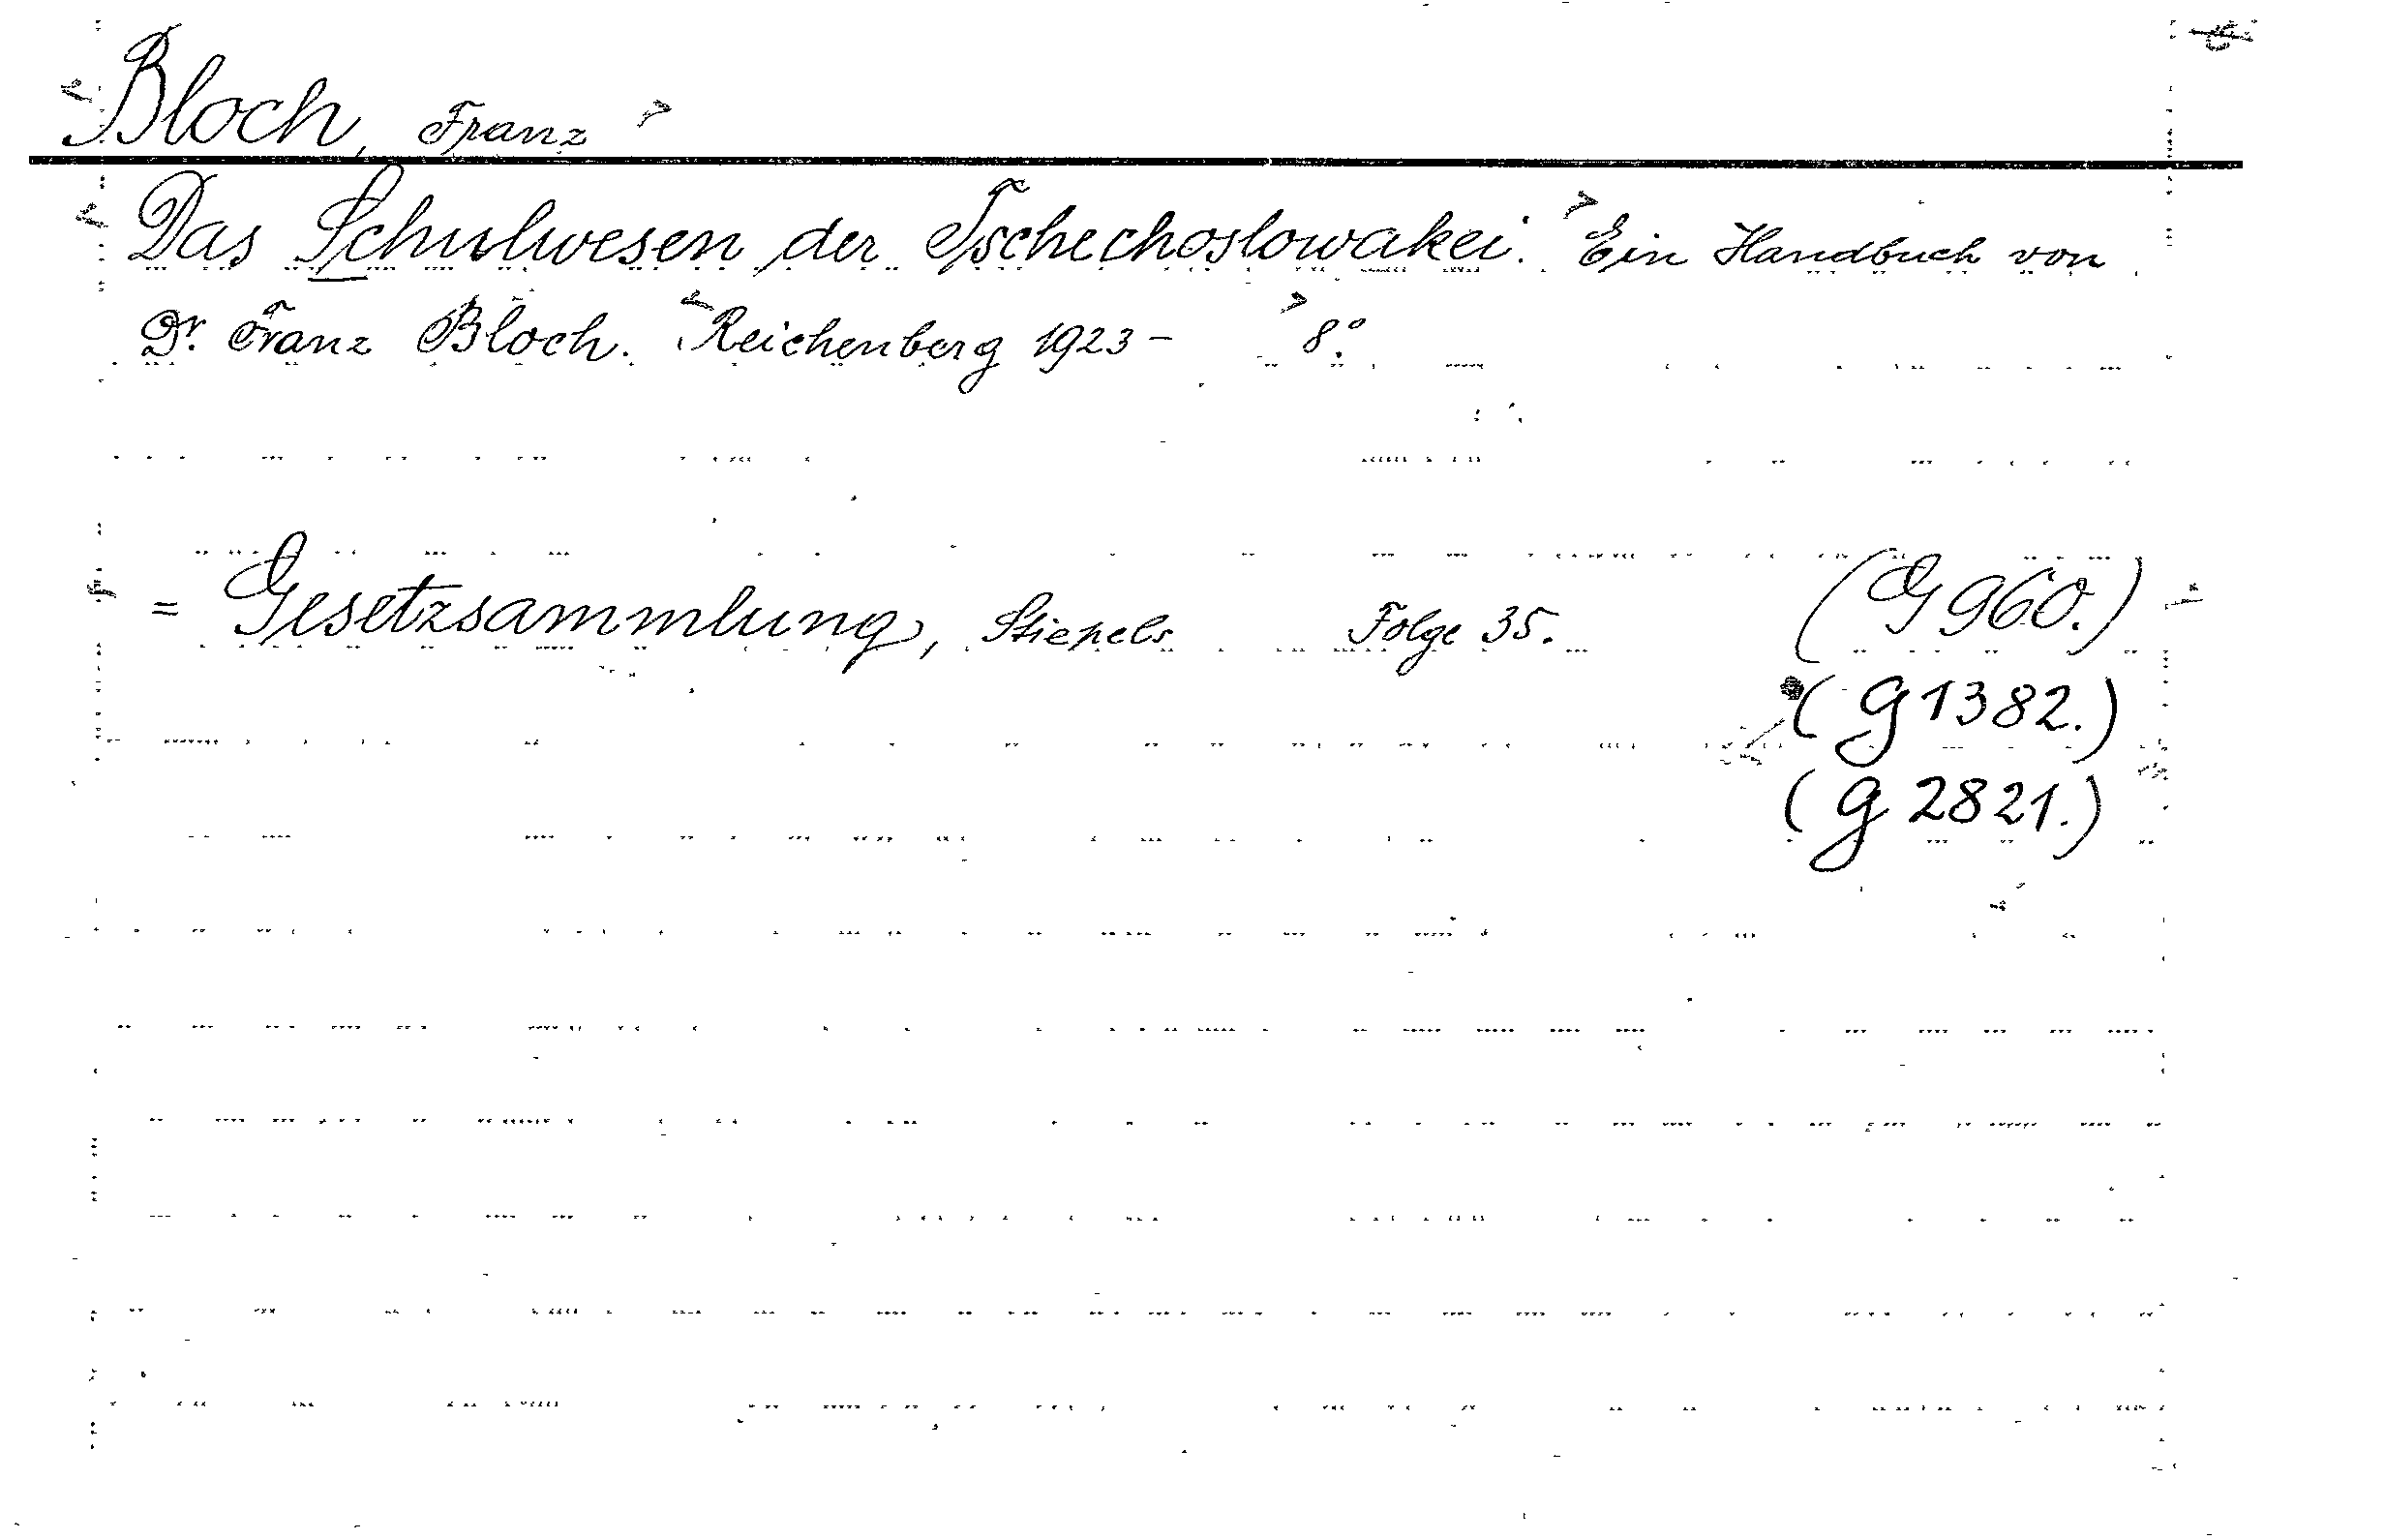 Bloch, Franz
Das Schulwesen der Tschechoslowakei. Ein Handbuch von
Dr. Franz Bloch. Reichenberg 1923 - 8°.
= Gesetzsammlung, Stiepels Folge 35. (G 960.)
(G 1382.)
(G 2821.)